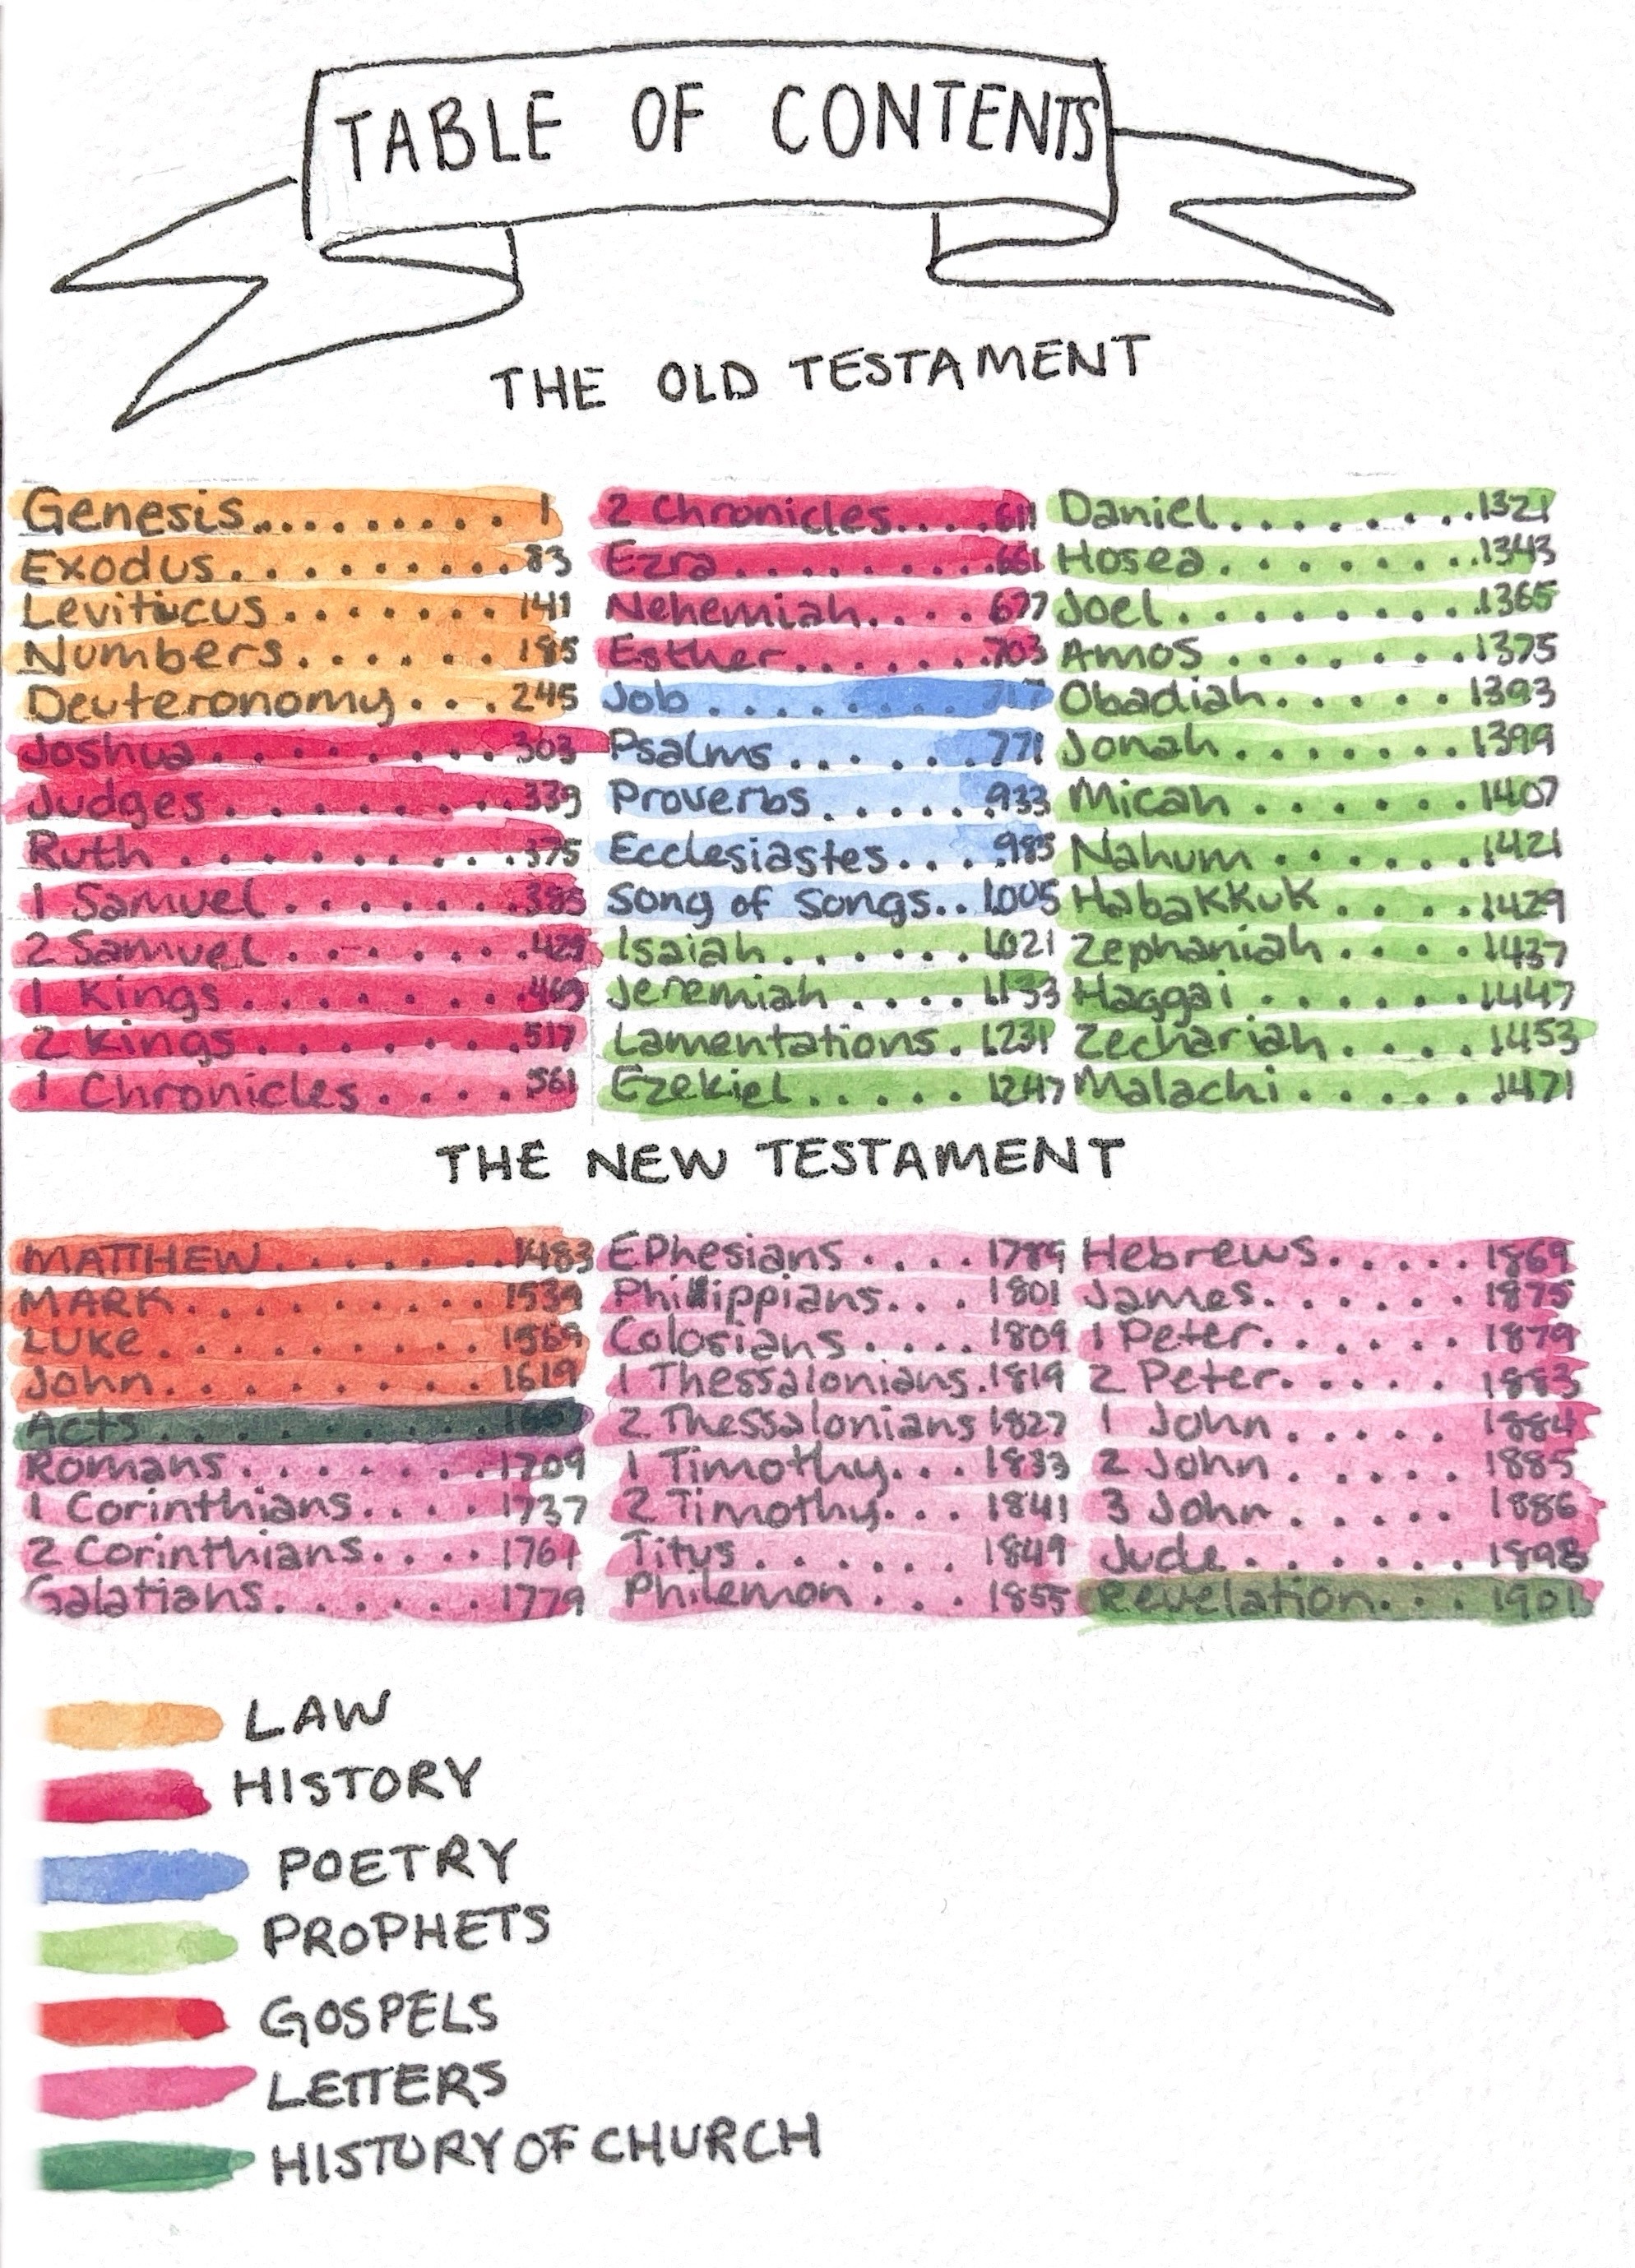 TABLE OF CONTENTS
THE OLD TESTAMENT
Genesis.......... 1
Exodus..........83
Leviticus....... 141
Numbers...... 185
Deuteronomy... 245
Joshua......... 303
Judges.........339
Ruth..........375
1 Samuel....... 385
2 Samuel.......429
1 Kings........469
2 Kings........517
1 Chronicles.... 561
2 Chronicles....611
Ezra..........661
Nehemiah.... 677
Esther.......703
Job......... 717
Psalms....... 771
Proverbs......933
Ecclesiastes....985
Song of Songs...1005
Isaiah....... 1021
Jeremiah.... 1133
Lamentations. 1231
Ezekiel..... 1247
Daniel........1321
Hosea........1343
Joel.........1365
Amos........1375
Obadiah..... 1393
Jonah....... 1399
Micah.......1407
Nahum.......1421
Habakkuk.....1429
Zephaniah.....1437
Haggai.......1447
Zechariah.....1453
Malachi.......1471
THE NEW TESTAMENT
MATTHEW....... 1483
MARK......... 1539
LUKE......... 1569
John......... 1619
Acts..........
Romans.........1709
1 Corinthians.... 1737
2 Corinthians.... 1761
Galatians...... 1779
Ephesians.... 1789
Philippians... 1801
Colosians.... 1809
1 Thessalonians.1819
2 Thessalonians 1827
1 Timothy... 1833
2 Timothy... 1841
Titus...... 1849
Philemon... 1855
Hebrews..... 1869
James...... 1875
1 Peter...... 1879
2 Peter..... 1883
1 John..... 1884
2 John..... 1885
3 John..... 1886
Jude....... 1898
Revelation... 1901
LAW
HISTORY
POETRY
PROPHETS
GOSPELS
LETTERS
HISTORY OF CHURCH